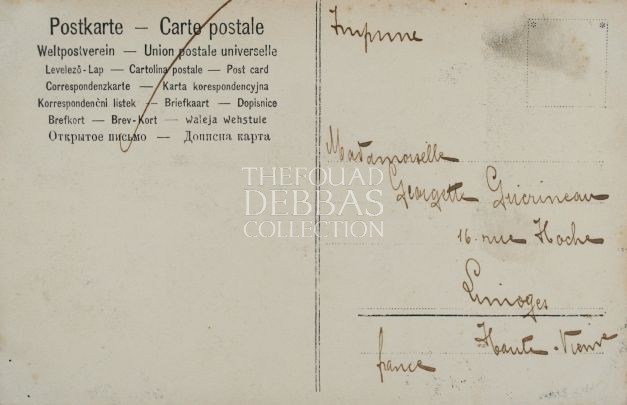 Postkarte — Carte postale
Weltpostverein — Union postale universelle
Levelező-Lap — Cartolina postale — Post card
Correspondenzkarte — Karta korespondencyjna
Korrespondenční listek — Briefkaart — Dopisnice
Brefkort — Brev-Kort — Waleja Wehstule
Открытое письмо — Дописна карта
Imprimé
Mademoiselle
Georgette Guérineau
16 rue Hoche
Limoges
Haute-Vienne
france
THE FOUAD
DEBBAS
COLLECTION